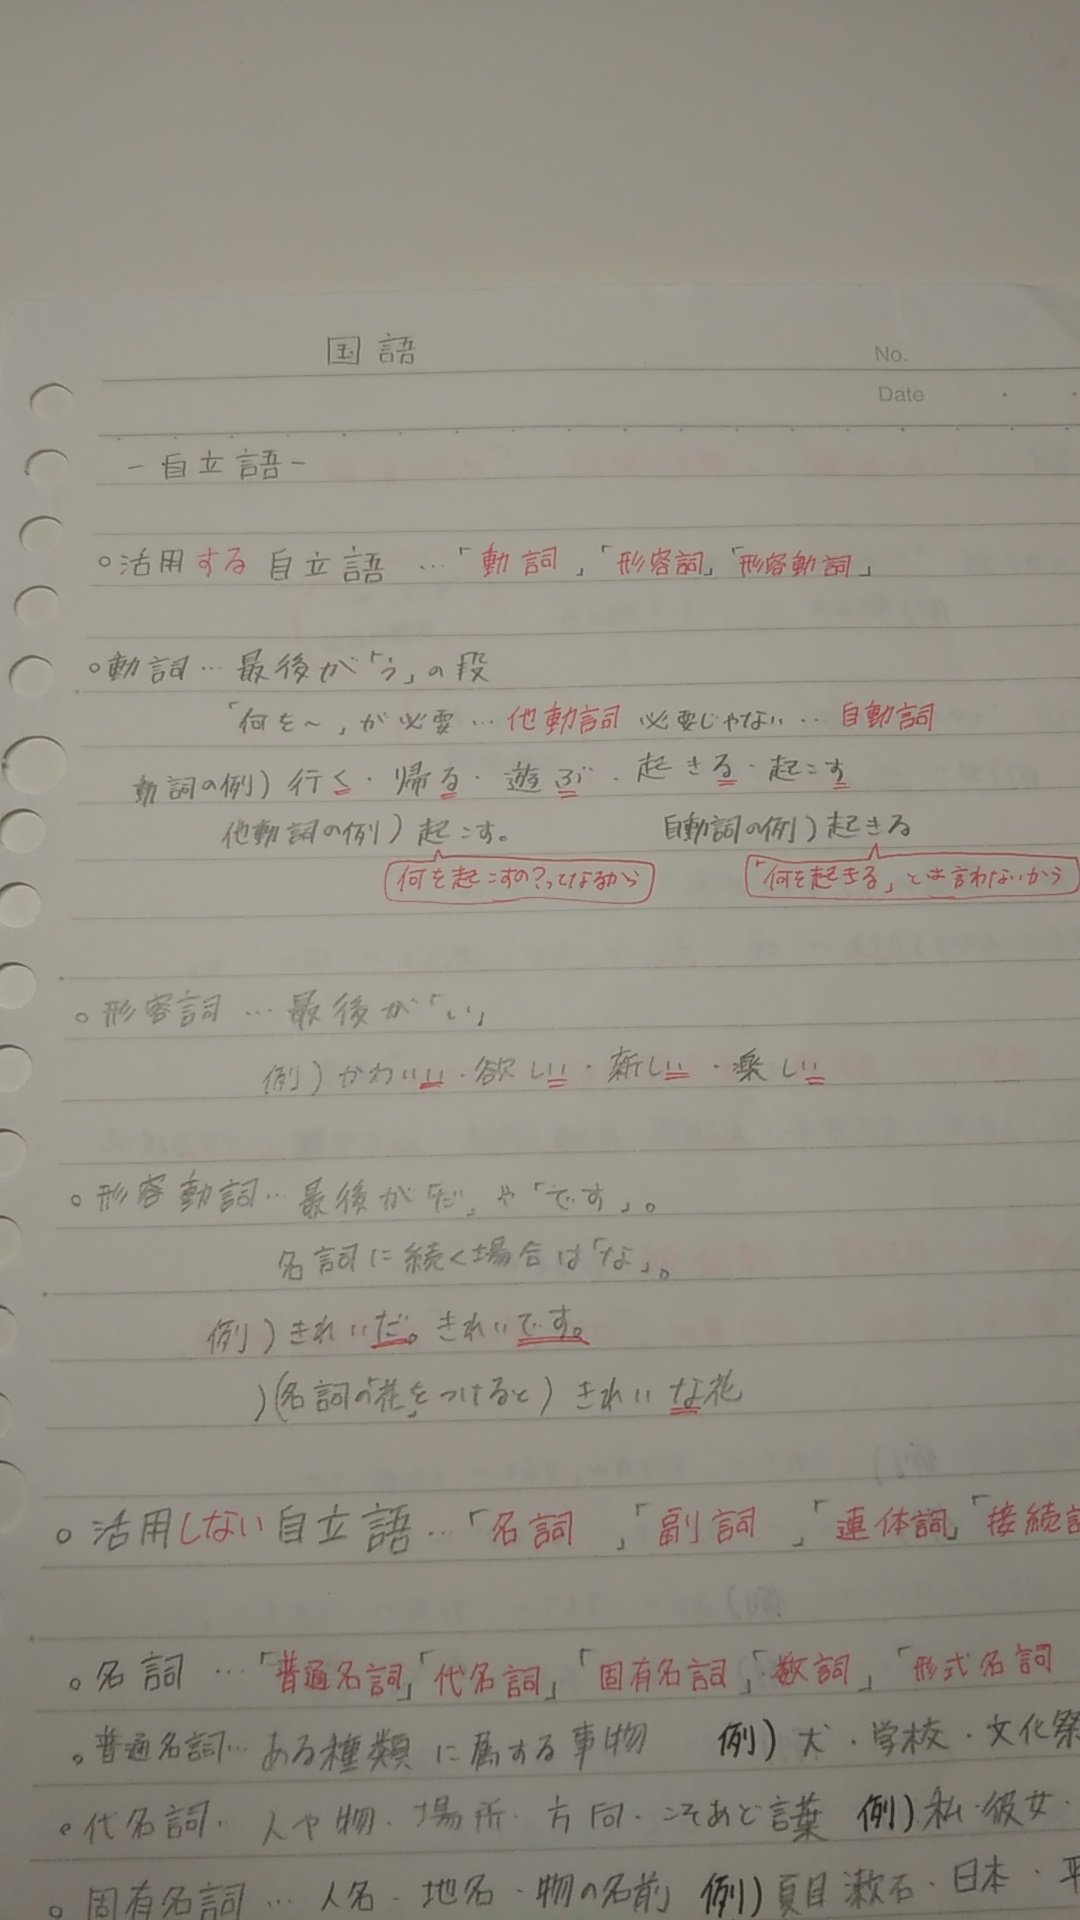 国語
No.
Date
-自立語-
○活用する自立語…「動詞」「形容詞」「形容動詞」
○動詞…最後が「う」の段
「何を~」が必要…他動詞 必要じゃない…自動詞
動詞の例)行く・帰る・遊ぶ・起きる・起こす
他動詞の例)起こす。 自動詞の例)起きる
何を起こすの?ってなるから 「何を起きる」とは言わないから
○形容詞…最後が「い」
例)かわいい・欲しい・新しい・楽しい
○形容動詞…最後が「だ」や「です」。
名詞に続く場合は「な」。
例)きれいだ。きれいです。
)(名詞の「花」をつけると)きれいな花
○活用しない自立語…「名詞」「副詞」「連体詞」「接続詞
○名詞…「普通名詞」「代名詞」「固有名詞」「数詞」「形式名詞
○普通名詞…ある種類に属する事物 例)犬・学校・文化祭
○代名詞…人や物・場所・方向・こそあど言葉 例)私・彼女・
○固有名詞…人名・地名・物の名前 例)夏目漱石・日本・平